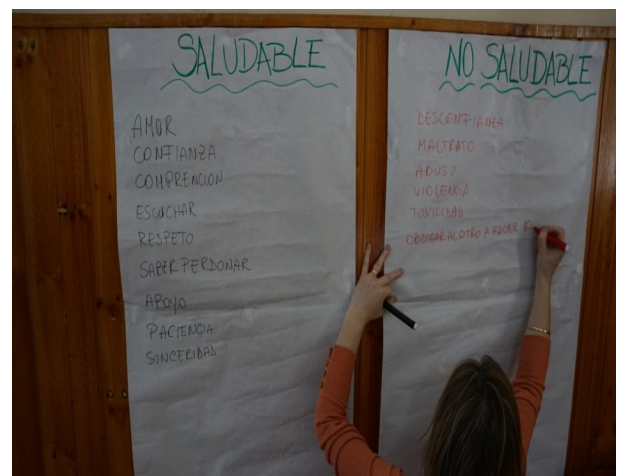 SALUDABLE
AMOR
CONFIANZA
COMPRENCION
ESCUCHAR
RESPETO
SABER PERDONAR
APOYO
PACIENCIA
SINCERIDAD
NO SALUDABLE
DESCONFIANZA
MALTRATO
ABUSO
VIOLENCIA
TOXICIDAD
OBLIGAR AL OTRO A HACER